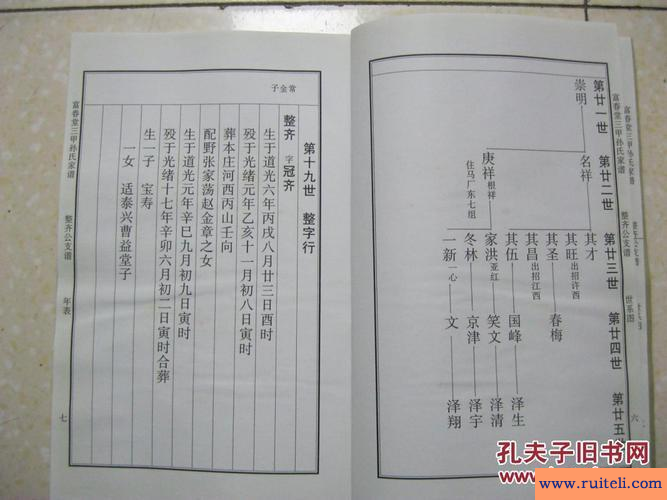 富春堂三甲孙氏家谱
整齐公支谱
世系图
六
第廿一世
第廿二世
第廿三世
第廿四世
第廿五世
崇明
名祥
其才
其旺出招许西
其圣——春梅
其昌出招江西
其伍——国峰——泽生
庚祥根祥
住马厂东七组
家洪亚红——笑文——泽清
冬林——京津——泽宇
一新一心——文——泽翔
常金子
第十九世 整字行
整齐 字冠齐
生于道光六年丙戌八月廿三日酉时
殁于光绪元年乙亥十一月初八日寅时
葬本庄河西丙山壬向
配野张家荡赵金章之女
生于道光元年辛巳九月初九日寅时
殁于光绪十七年辛卯六月初二日寅时合葬
生一子 宝寿
一女 适泰兴曹益堂子
富春堂三甲孙氏家谱
整齐公支谱
年表
七
孔夫子旧书网
www.ruiteli.com